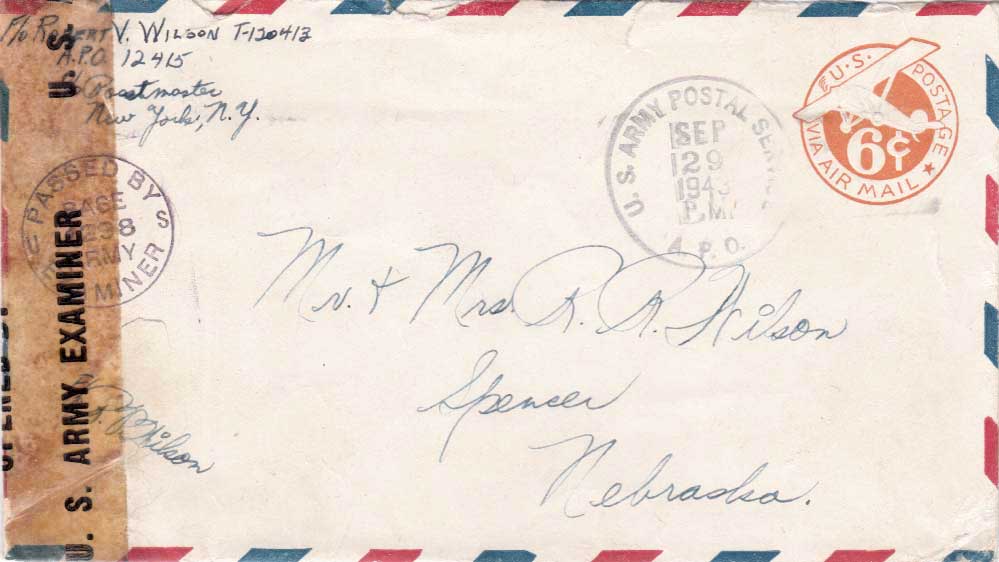 F/O Robert V. Wilson T-120413
A.P.O. 12415
% Postmaster
New York, N.Y.
U.S. ARMY POSTAL SERVICE
SEP
29
1943
P.M.
A.P.O.
U.S. POSTAGE
6¢
VIA AIR MAIL
PASSED BY
ARMY
EXAMINER
Mr. & Mrs. R. R. Wilson
Spencer
Nebraska.
U. S. ARMY EXAMINER
U. S.
OPENED BY
R V Wilson